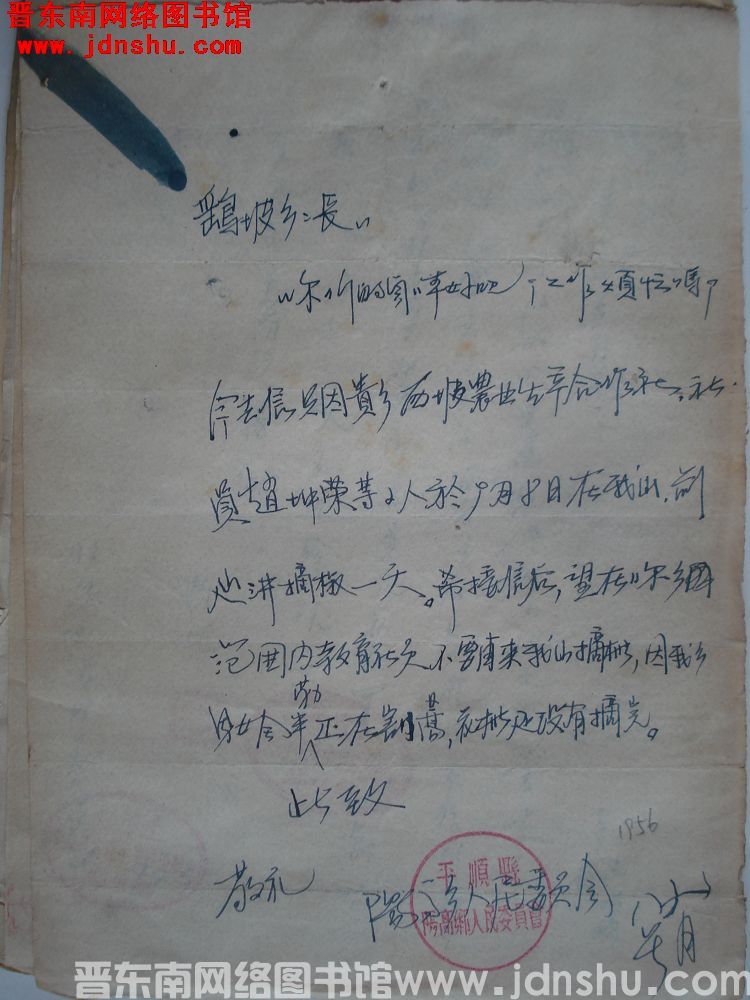 晋东南网络图书馆
www.jdnshu.com
坡乡长
你们的同事好吧，工作烦忙吗？
今去信只因貴乡西坡農业生产合作社，社
員趙坤荣等2人於9月8日在我山，前
沟摘椒一天。希接信后，望在你乡
范围内教育社员不要再来我山摘椒，因我乡
男女全半勤正在割蒿，花椒还没有摘完。
此致
敬礼
陽高乡人民委員会
平順縣
陽高鄉人民委員會
1956
月
晋东南网络图书馆www.jdnshu.com